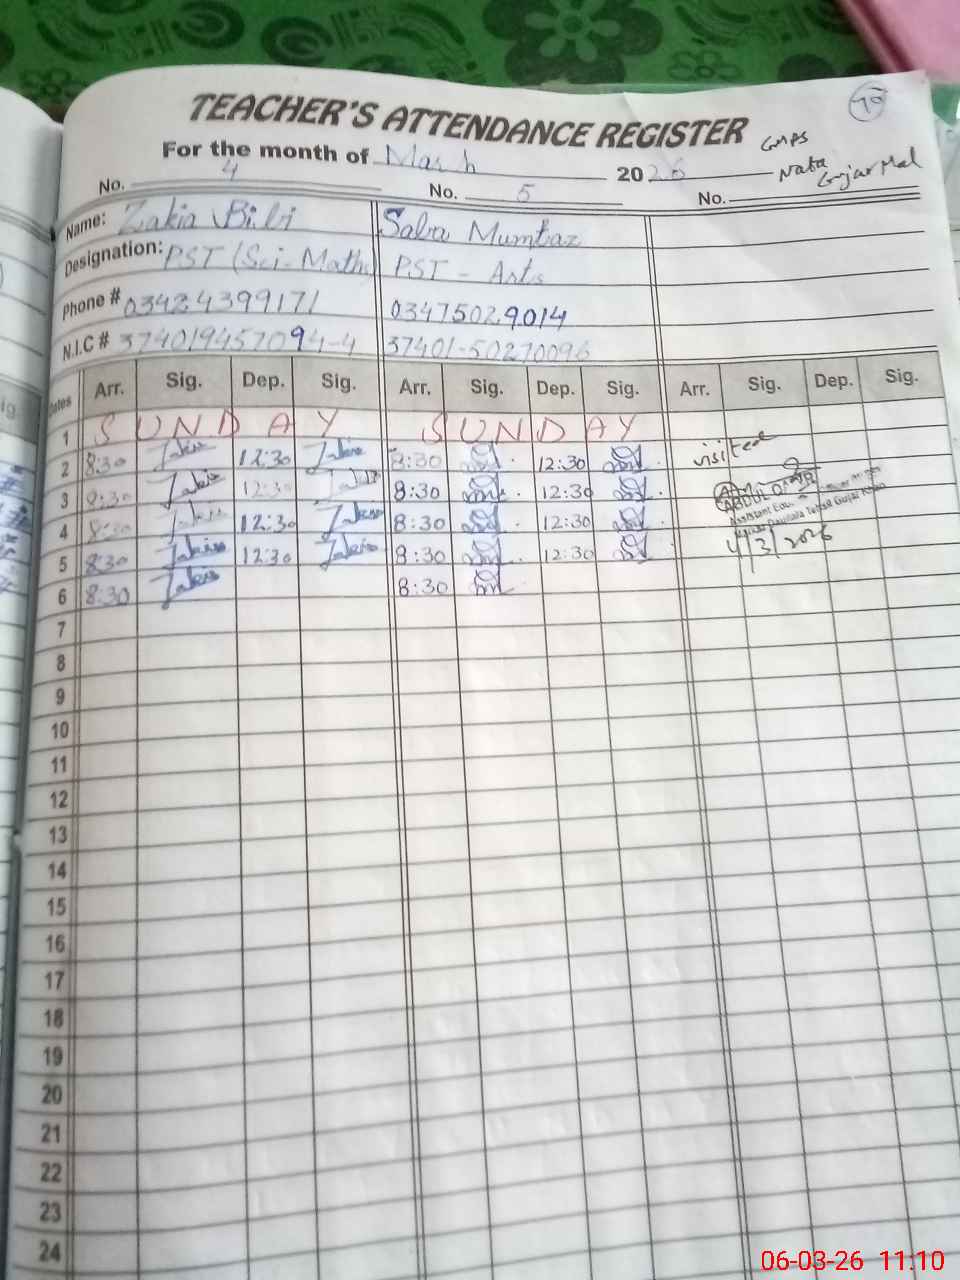 TEACHER'S ATTENDANCE REGISTER
70
For the month of March 2026
GMPS
Nata
Gujar Mal
No. 4 No. 5 No.
Name: Zakia Bibi Saba Mumtaz
Designation: PST (Sci-Math) PST - Arts
Phone # 03424399171 03475029014
N.I.C # 374019457094-4 37401-50270096
Dates Arr. Sig. Dep. Sig. Arr. Sig. Dep. Sig. Arr. Sig. Dep. Sig.
1 SUNDAY SUNDAY
2 8:30 Zakia 12:30 Zakia 8:30 12:30 visited
3 8:30 Zakia 12:30 Zakia 8:30 12:30
ABDUL
Assistant
4 8:30 Zakia 12:30 Zakia 8:30 12:30
Daultala Tehsil Gujar Khan
5 8:30 Zakia 12:30 Zakia 8:30 12:30 4/3/2026
6 8:30 Zakia 8:30
7
8
9
10
11
12
13
14
15
16
17
18
19
20
21
22
23
24
06-03-26 11:10